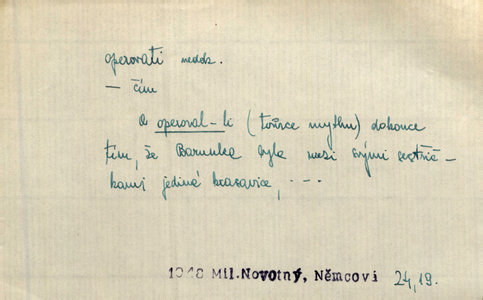 operovati nedok.
— čím
A operoval-li (tvůrce mythu) dokonce
tím, že Barunka byla mezi svými sestřič-
kami jediná krasavice, - - -
1948 Mil.Novotný, Němcovi 24,19.